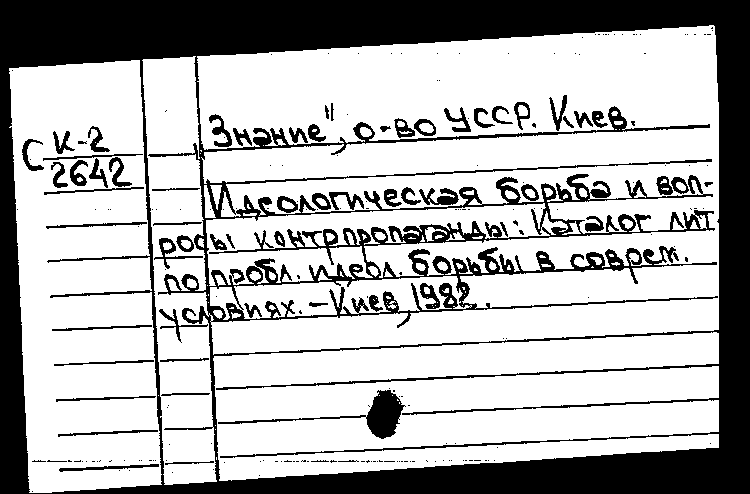 С К-2
2642
"Знание", о-во УССР. Киев.
Идеологическая борьба и воп-
росы контрпропаганды: Каталог лит.
по пробл. идеол. борьбы в соврем.
условиях. – Киев, 1982.